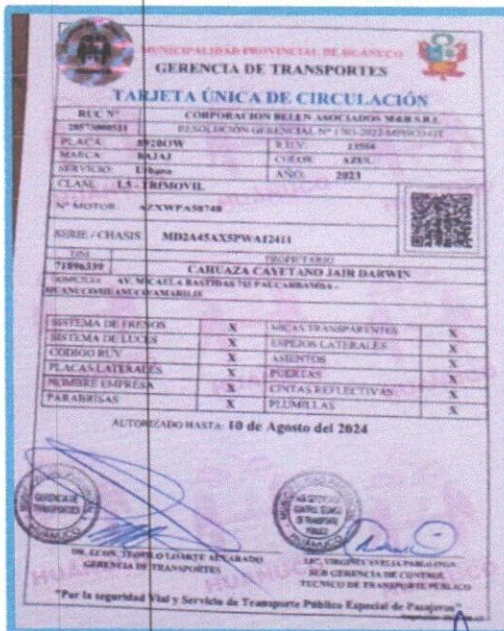 MUNICIPALIDAD PROVINCIAL DE HUANUCO
GERENCIA DE TRANSPORTES
TARJETA ÚNICA DE CIRCULACIÓN
RUC Nº CORPORACION BELEN ASOCIADOS M&B S.R.L
RESOLUCIÓN GERENCIAL Nº
PLACA: 8920OW R.U.V:
MARCA: BAJAJ COLOR: AZUL
SERVICIO: Urbano AÑO: 2023
CLASE: L5 - TRIMOVIL
Nº MOTOR: AZXWPA50740
SERIE / CHASIS MD2A45AX5PWA12411
DNI PROPIETARIO
71896339 CAHUAZA CAYETANO JAIR DARWIN
AV. MICAELA BASTIDAS PAUCARBAMBA -
HUANUCO/HUANUCO/AMARILIS
SISTEMA DE FRENOS X MICAS TRANSPARENTES X
SISTEMA DE LUCES X ESPEJOS LATERALES X
CODIGO RUV X ASIENTOS X
PLACAS LATERALES X PUERTAS X
NOMBRE EMPRESA X CINTAS REFLECTIVAS X
PARABRISAS X PLUMILLAS X
AUTORIZADO HASTA: 10 de Agosto del 2024
GERENCIA DE TRANSPORTES
HUANUCO
DR. ECON. TEOFILO LOARTE ALVARADO
GERENCIA DE TRANSPORTES
LIC. VIRGINIA AVELIA PABLO INGA
SUB GERENCIA DE CONTROL
TECNICO DE TRANSPORTE PUBLICO
"Por la seguridad Vial y Servicio de Transporte Público Especial de Pasajeros"